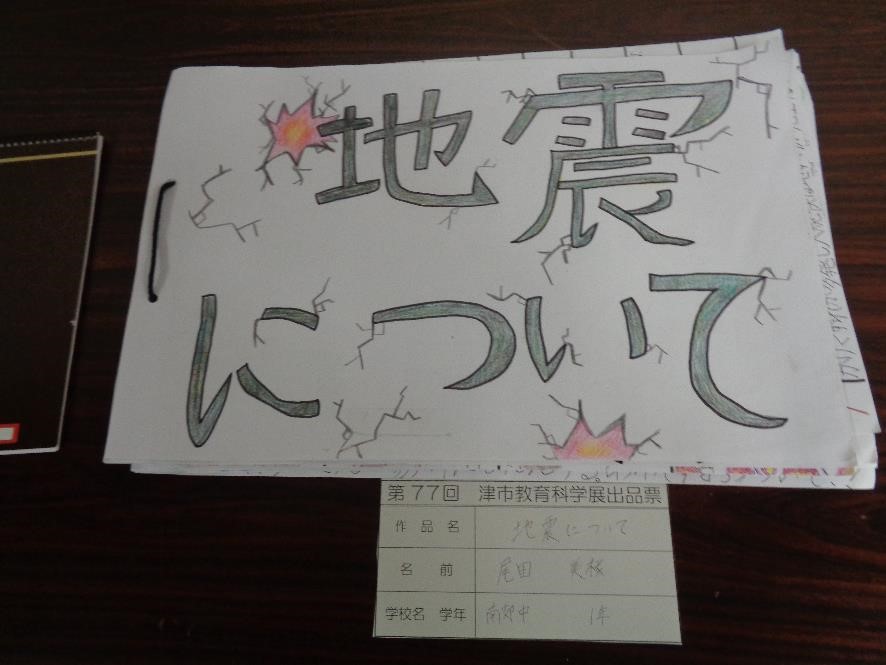 地震
について
第77回 津市教育科学展出品票
作品名 地震について
名前 尾田 美桜
学校名 学年 南郊中 1年